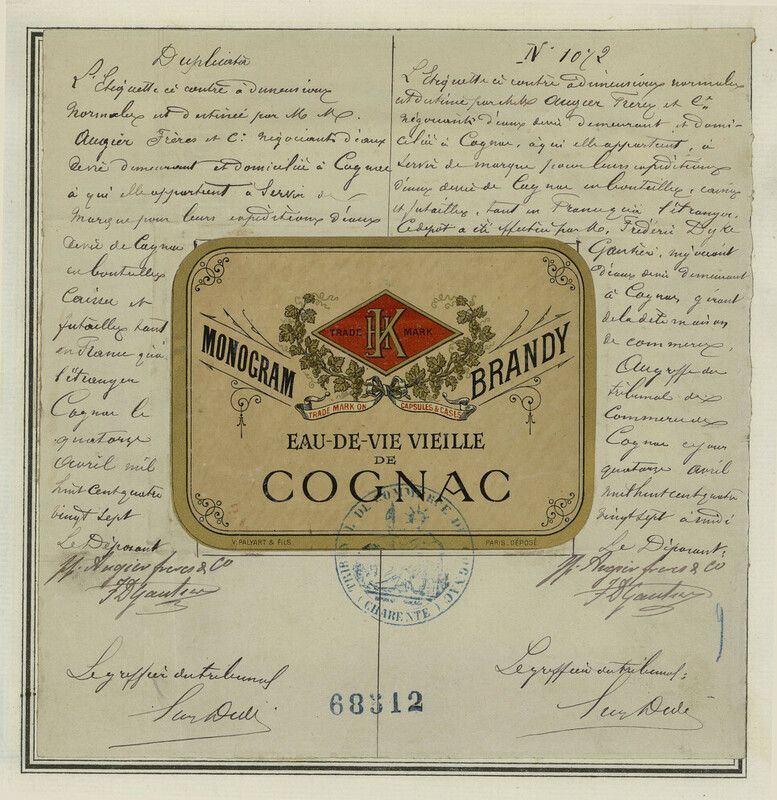 Duplicata
L'Etiquette ci contre à dimensions
normales est destinée par M M.
Augier Frères et Cie négociants d'eaux
de vie demeurant et domiciliés à Cognac
à qui elle appartient à Servir de
Marque pour leurs expéditions d'eaux
de vie de Cognac
en bouteilles
Caisses et
futailles tant
en France qu'à
l'étranger
Cognac le
quatorze
avril mil
huit cent quatre
vingt sept
Le Déposant
pp. Augier frères & Co
F D Gautier
Le greffier du tribunal
N° 1072
L'Etiquette ci contre à dimensions normales
est destinée par M.M. Augier Frères et Cie
négociants d'eaux de vie demeurant et domi-
ciliés à Cognac, à qui elle appartient, à
servir de marque pour leurs expéditions
d'eaux de vie de Cognac en bouteilles, caisses
et futailles, tant en France qu'à l'étranger.
Ce dépôt a été effectué par M. Frédéric Dyke
Gautier, négociant
d'eaux de vie demeurant
à Cognac, gérant
de la dite maison
de commerce,
Au greffe du
tribunal de
Commerce de
Cognac ce jour
quatorze avril
mil huit cent quatre
vingt sept à midi
Le Déposant:
pp. Augier frères & Co
F D Gautier
Le greffier du tribunal:
TRADE HK MARK
MONOGRAM BRANDY
TRADE MARK ON CAPSULES & CASES
EAU-DE-VIE VIEILLE
DE
COGNAC
V. PALYART & FILS. PARIS, DÉPOSÉ
TRIBUNAL DE COMMERCE DE COGNAC
(CHARENTE)
68312